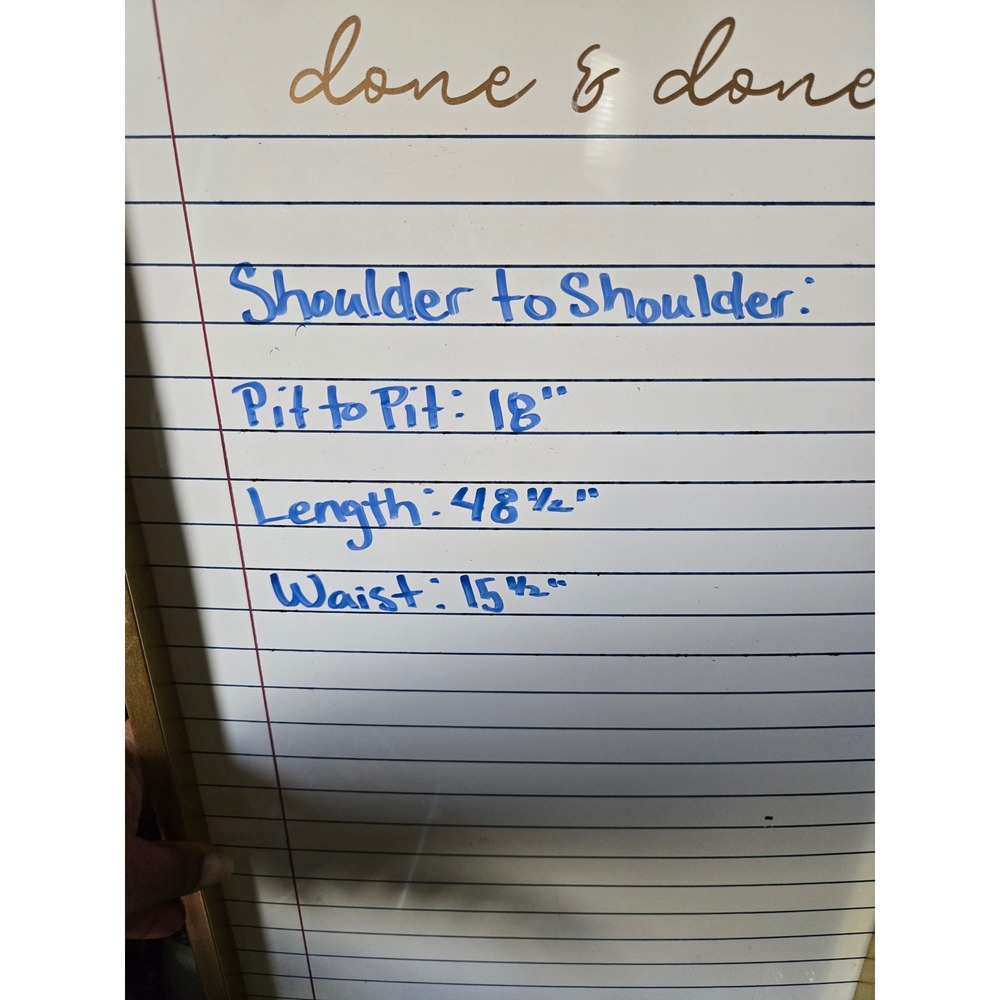 done & done
Shoulder to Shoulder:
Pit to Pit: 18"
Length: 48 1/2"
Waist: 15 1/2"